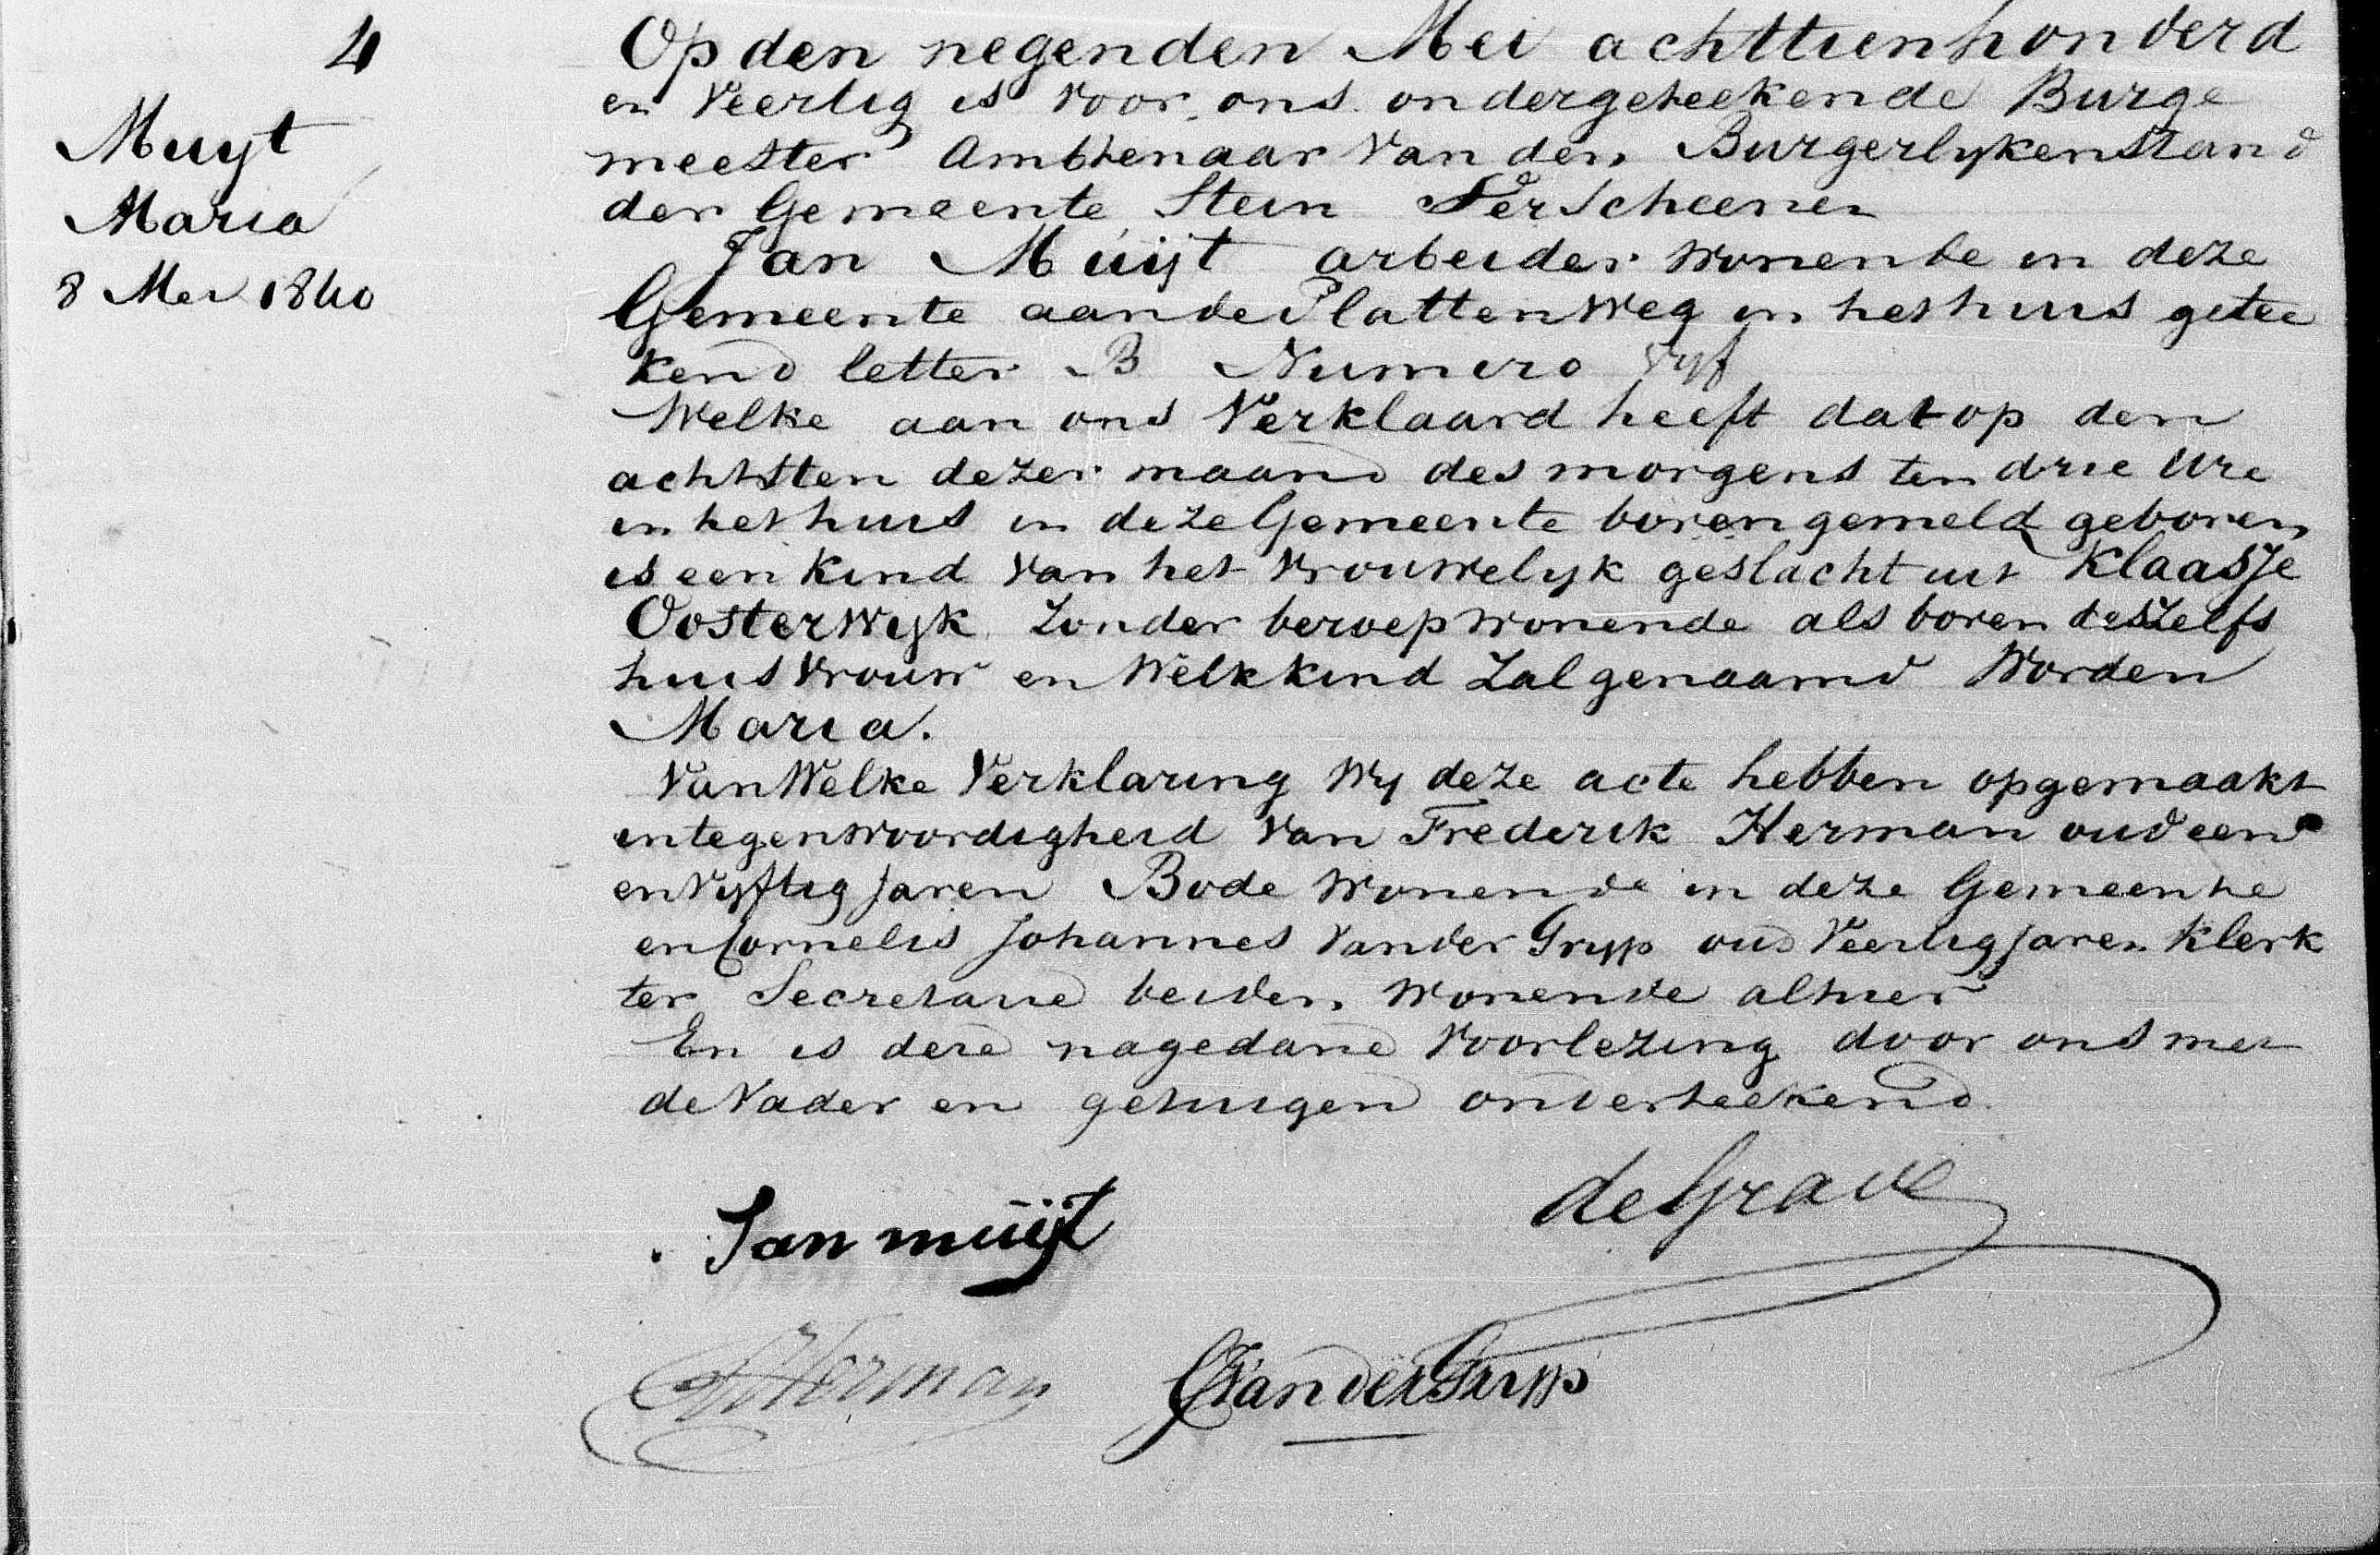 4
Muyt
Maria
8 Mei 1840
Op den negenden Mei achttienhonderd
en Veertig is voor ons ondergeteekende Burge
meester Ambtenaar van den Burgerlyken Stand
der Gemeente Stein Verscheenen
Jan Muijt arbeider wonende in deze
Gemeente aan de Platten Weg in het huis getee
kend letter B Numero Vyf
Welke aan ons Verklaard heeft dat op den
achtsten dezer maand des morgens ten drie Ure
in het huis in deze Gemeente boven gemeld geboren
is een kind van het Vrouwelyk geslacht uit Klaasje
Oosterwyk Zonder beroep wonende als boven deszelfs
huisvrouw en Welk kind Zal genaamd Worden
Maria.
Van Welke Verklaring Wy deze acte hebben opgemaakt
in tegenwoordigheid van Frederik Herman oud een
en Vyftig Jaren Bode wonende in deze Gemeente
en Cornelis Johannes van der Gryp oud Veertig Jaren Klerk
ter Secretarie beiden wonende alhier
En is deze na gedane Voorlezing door ons met
de Vader en getuigen onderteekend.
Jan muijt
de Grave
Herman
CJ van der Gryp